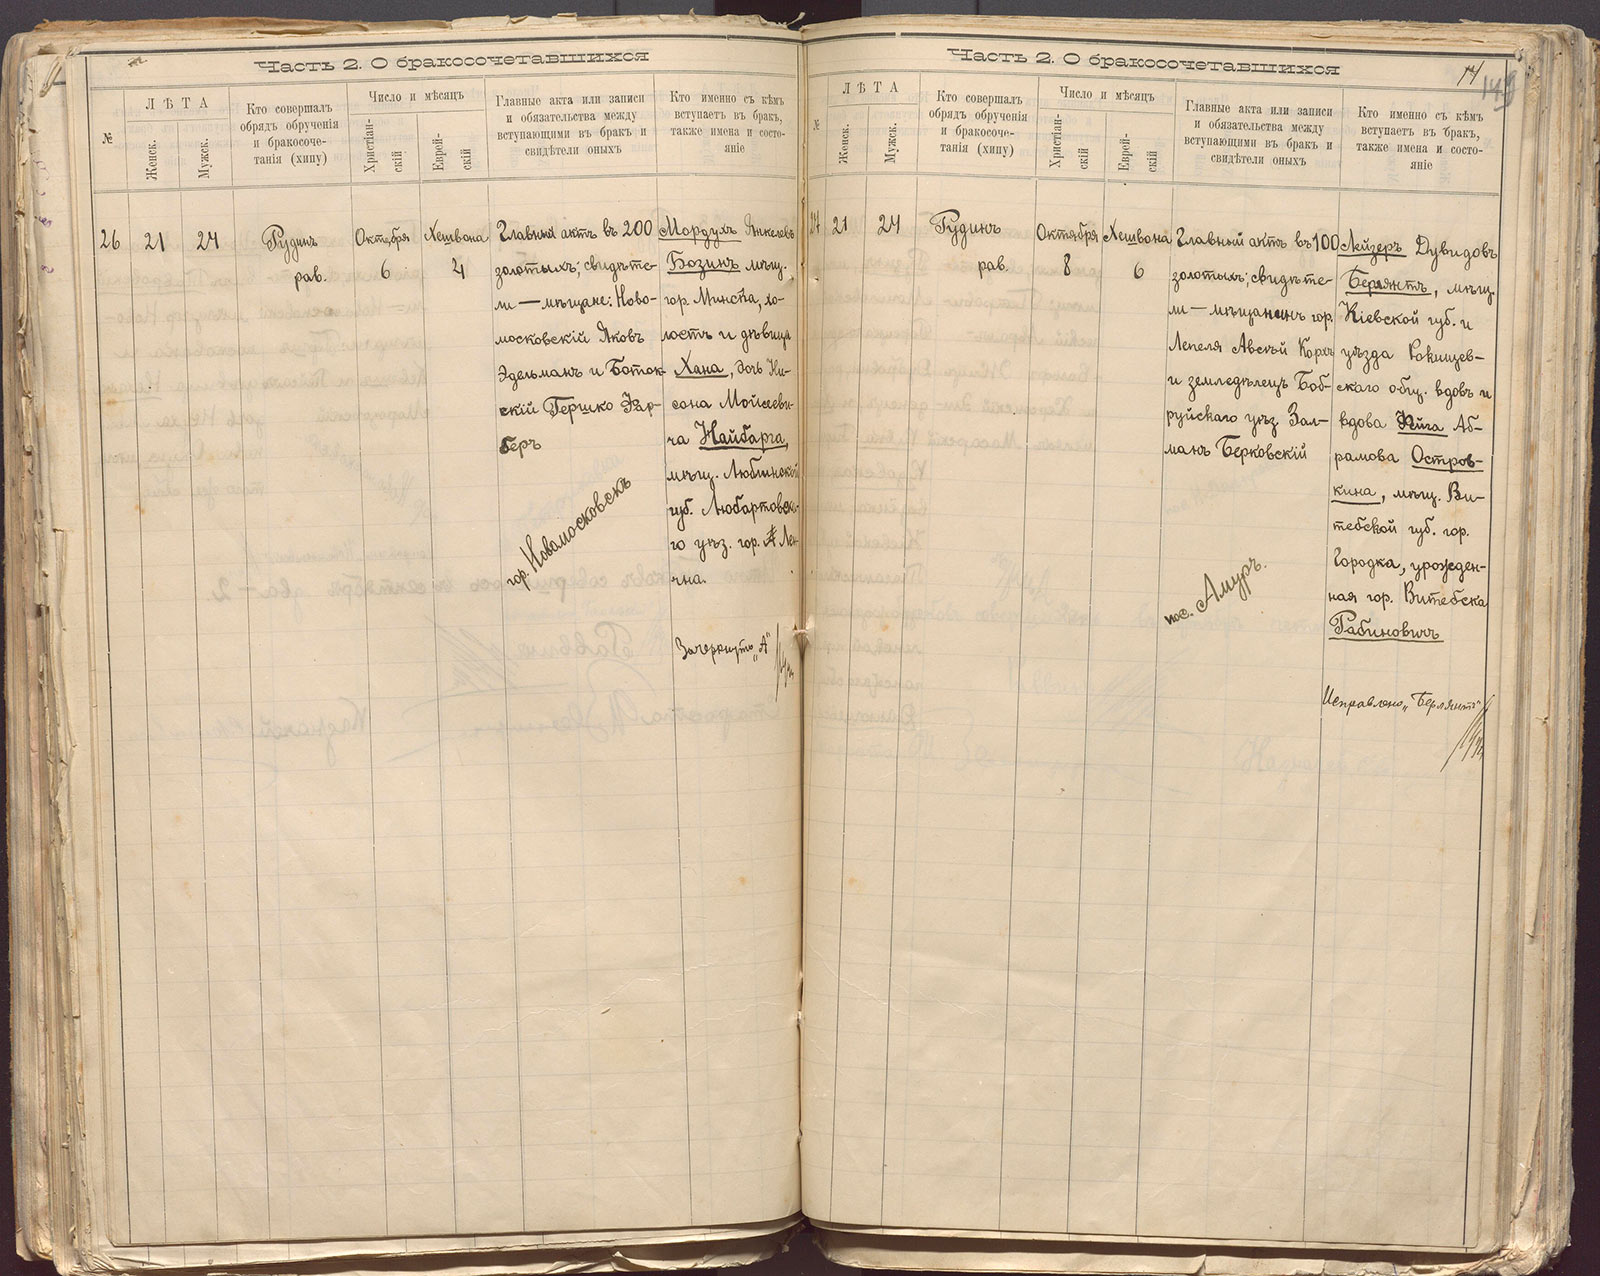 Часть 2. О бракосочетавшихся
№
ЛѢТА
Женск.
Мужск.
Кто совершалъ
обрядъ обрученія
и бракосоче-
танія (хипу)
Число и мѣсяцъ
Христіан-
скій
Еврей-
скій
Главные акта или записи
и обязательства между
вступающими въ бракъ и
свидѣтели оныхъ
Кто именно съ кѣмъ
вступаетъ въ бракъ,
также имена и состо-
яніе
26
21
24
Рудинъ
рав.
Октября
6
Хешвона
4
Главный актъ въ 200
золотыхъ; свидѣте-
ли — мѣщане: Ново-
московскій Яковъ
Эдельманъ и Боток-
скій Гершко Фар-
беръ
гор. Новомосковскъ
Мордухъ Янкелевъ
Бозинъ мѣщ.
гор. Минска, хо-
лостъ и дѣвица
Хана, дочь Ни-
сона Мойсееви-
ча Найбарга,
мѣщ. Люблинской
губ. Любартовска-
го уѣз. гор. А Лен-
чна.
Зачеркнуто „А“
Часть 2. О бракосочетавшихся
14
149
№
ЛѢТА
Женск.
Мужск.
Кто совершалъ
обрядъ обрученія
и бракосоче-
танія (хипу)
Число и мѣсяцъ
Христіан-
скій
Еврей-
скій
Главные акта или записи
и обязательства между
вступающими въ бракъ и
свидѣтели оныхъ
Кто именно съ кѣмъ
вступаетъ въ бракъ,
также имена и состо-
яніе
27
21
24
Рудинъ
рав.
Октября
8
Хешвона
6
Главный актъ въ 100
золотыхъ; свидѣте-
ли — мѣщанинъ гор.
Лепеля Авсѣй Корхъ
и земледѣлецъ Боб-
руйскаго уѣз Зал-
манъ Берковскій
пос. Амуръ.
Лейзеръ Дувидовъ
Берлянтъ, мѣщ.
Кіевской губ. и
уѣзда Рокищев-
скаго общ. вдовъ и
вдова Фейга Аб-
рамова Остров-
кина, мѣщ. Ви-
тебской губ. гор.
Городка, урожден-
ная гор. Витебска
Рабиновичъ
Исправлено „Берлянтъ“